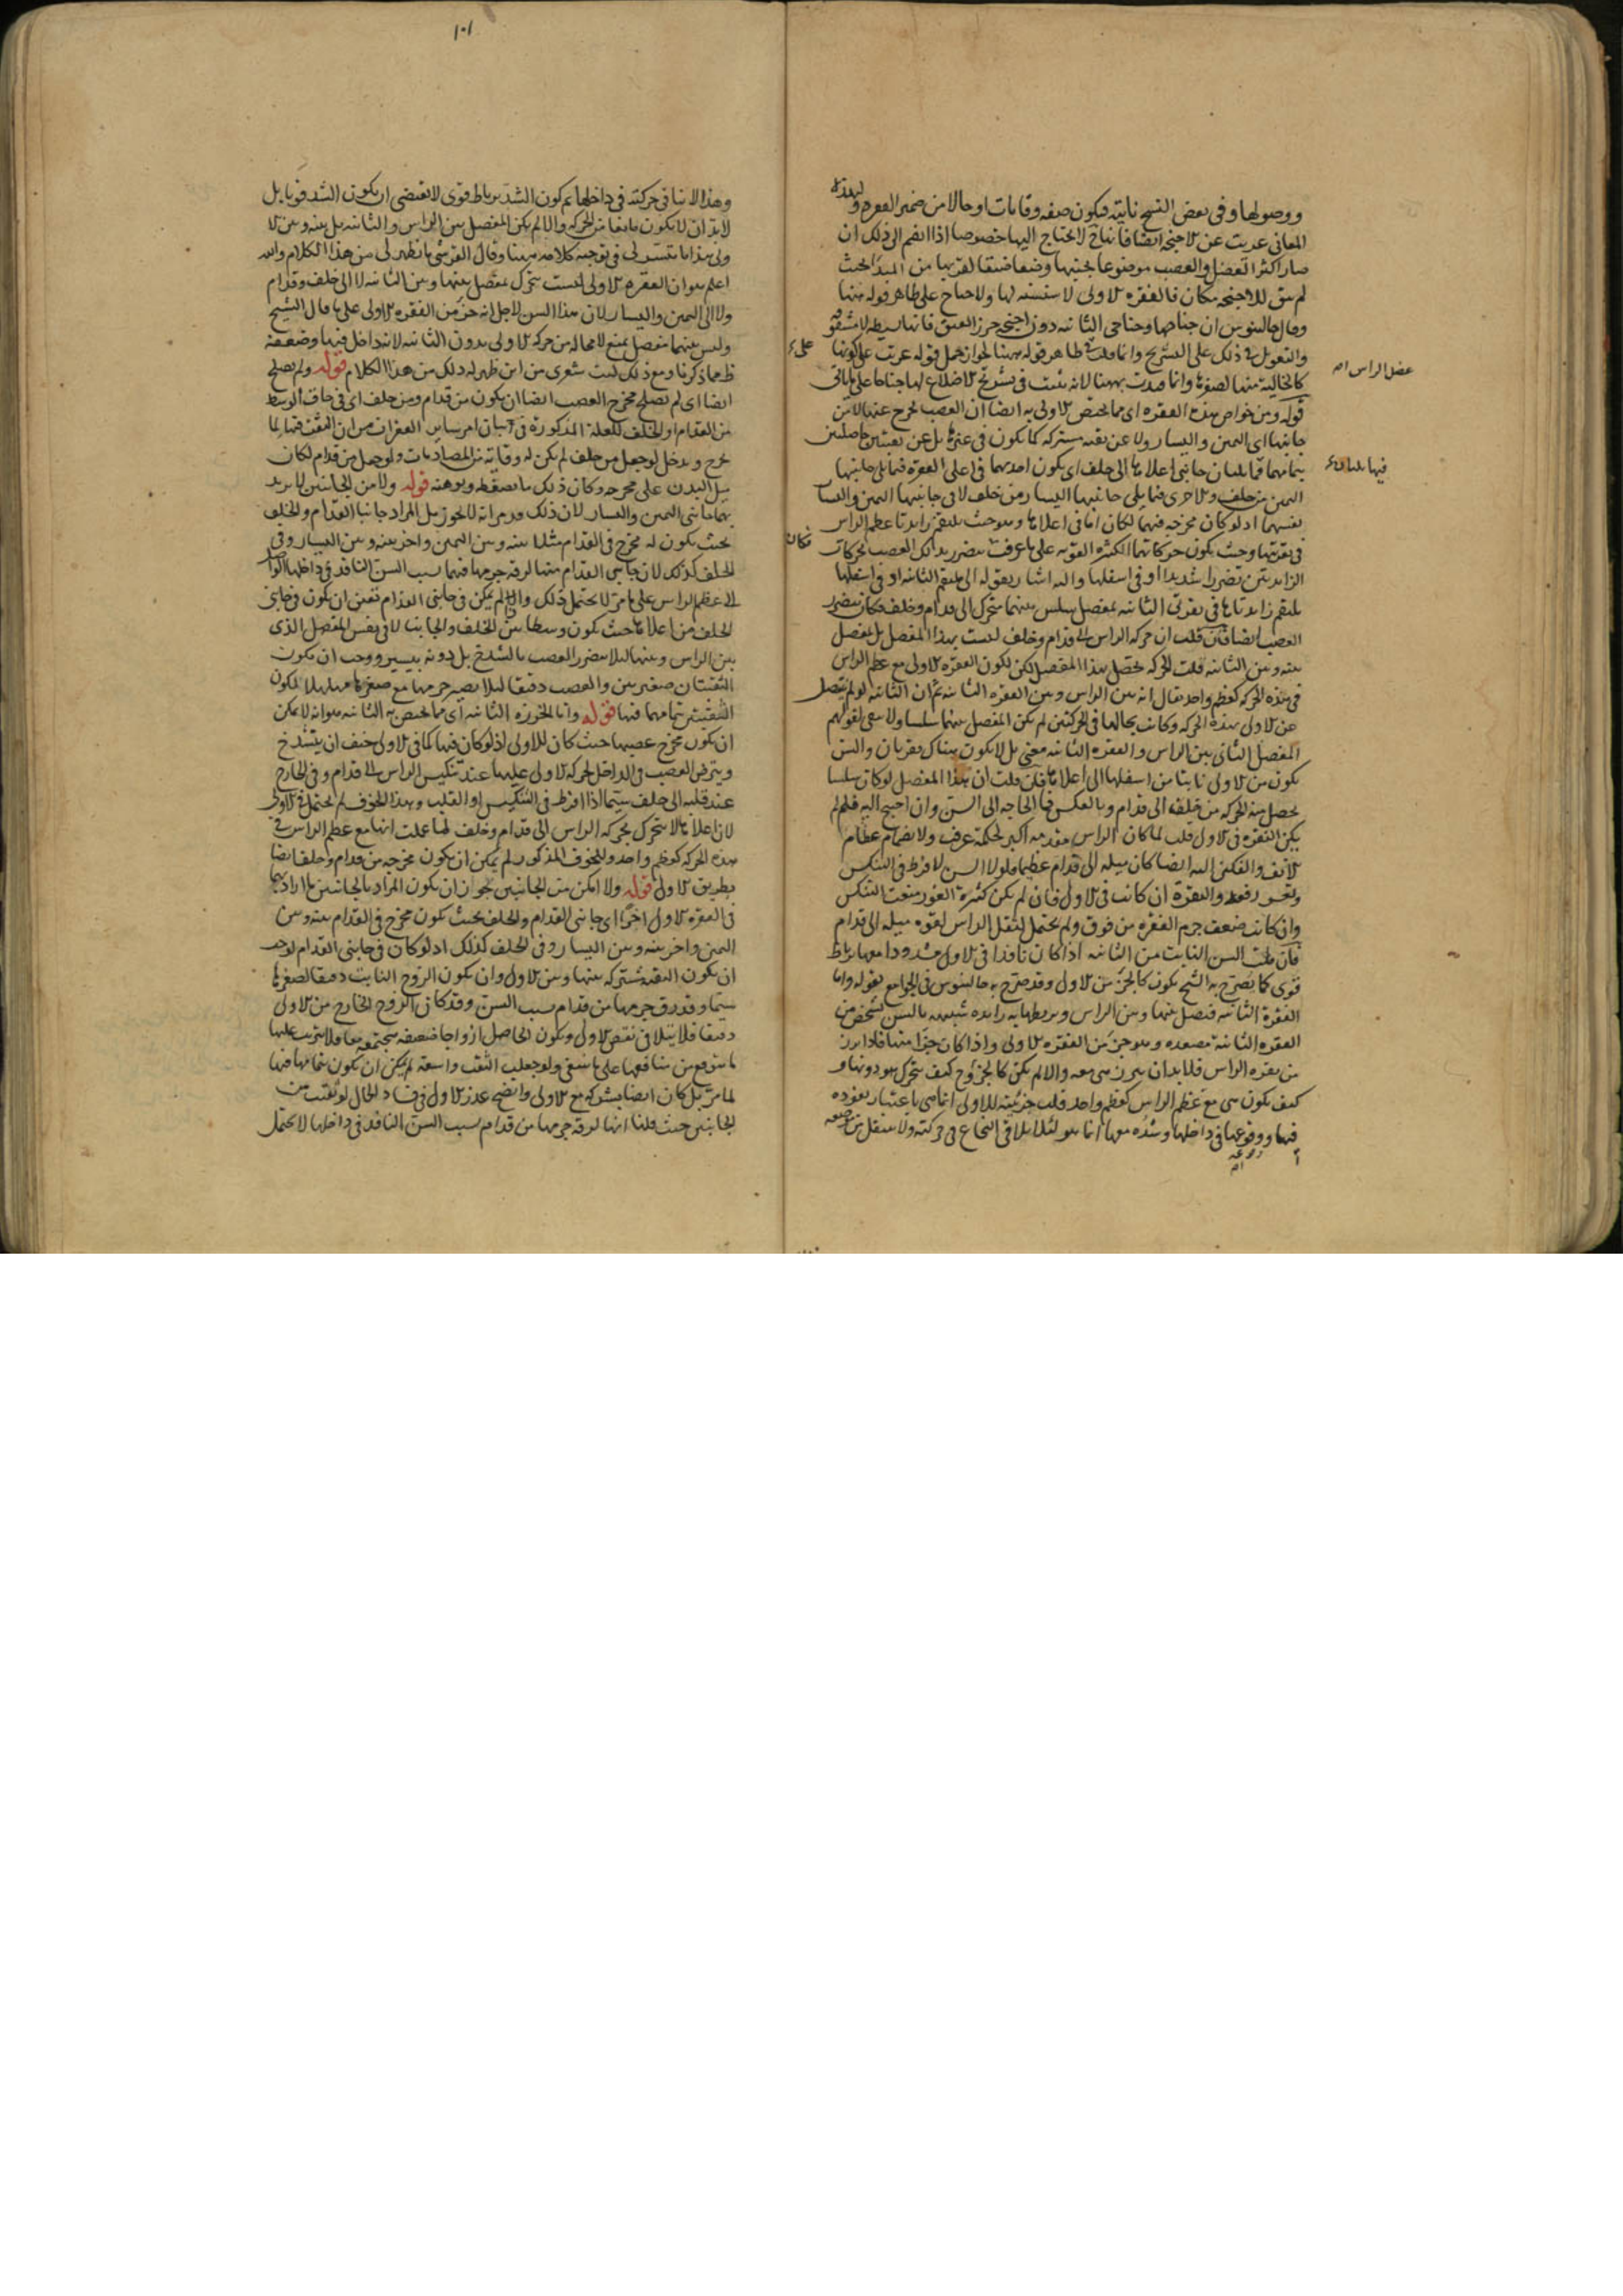 ووصولها وفى بعض النسخ ناتية فيكون صفة وقايات او حالا من ضمير الفقرة ولهذه
المعانى عريت عن الاجنحة ايضا فانها لا تحتاج اليها خصوصا اذا انضم الى ذلك ان
صار اكثر العضل والعصب موضوعا بجنبها وضعا ضيقا لقربها من المبدأ بحيث
عضل الراس
لم يبق للاجنحة مكان فالفقرة الاولى لا سنسنة لها ولا جناح على ظاهر قوله منها
وقال جالينوس ان جناحها وجناحى الثانية دون اجنحة خرز العنق فانها بسيطة لا مشقوقة
والتعويل فى ذلك على التشريح وانما قلت ظاهر قوله ههنا لجواز حمل قوله عريت على كونها
كالخالية منها لصغرها وانما قيدت بههنا لانه يثبت فى تشريح الاضلاع لها جناحا على ما ياتى
قوله ومن خواص هذه الفقرة اى مما يختص الاولى به ايضا ان العصب يخرج عنها لا من
جانبها اى اليمين واليسار ولا عن ثقبة مشتركة كما يكون فى غيرها بل عن ثقبتين حاصلتين
بتمامهما فيها يليان جانبى اعلاها الى خلف اى يكون احديهما فى اعلى الفقرة فيما يلى جانبها
اليمين من خلف والاخرى فيما يلى جانبها اليسار من خلف لا فى جانبيها اليمين واليسار
نفسهما اذ لو كان مخرجه فيهما لكان اما فى اعلاها وهو حيث يلتقم زايدتا عظم الراس
فى نقرتيها وحيث يكون حركاتهما الكثيرة القوية على ما عرفت فكان يتضرر بذلك العصب بحركات
الزايدتين تضررا شديدا او فى اسفلها واليه اشار بقوله الى ملتقم الثانية او فى اسفلها
يلتقم زايدتاها فى نقرتى الثانية بمفصل سلس بينهما متحرك الى قدام وخلف فكان يتضرر
العصب ايضا فان قلت ان حركة الراس الى قدام وخلف ليست بهذا المفصل بل بمفصل
بينه وبين الثانية قلت الحركة تحصل بهذا المفصل لكن لكون الفقرة الاولى مع عظم الراس
فى هذه الحركة كعظم واحد يقال انه بين الراس وبين الفقرة الثانية ثم ان الثانية لو لم تتصل
عن الاولى بهذه الحركة وكانت بحالها فى الحركتين لم يكن المفصل بينهما سلسا ولا يبقى لقولهم
المفصل الثانى بين الراس والفقرة الثانية معنى بل لا يكون هناك نقرتان والسن
يكون من الاولى نابتا من اسفلها الى اعلاها فان قلت ان هذا المفصل لو كان سلسا
يحصل منه الحركة من خلف الى قدام وبالعكس فما الحاجة الى السن وان احتيج اليه فلم لم
يكن النقرة فى الاولى قلت لما كان الراس مقدمه اكبر لحكمة عرفت ولانضمام عظام
الانف والفكين اليه ايضا كان ميله الى قدام عظيما فلولا السن لافرط فى التنكس
وان كانت ضعف جرم الفقرة من فوق ولم يحتمل لثقل الراس لقوة ميله الى قدام
فان قلت السن النابت من الثانية اذا كان نافذا فى الاولى مشدودا معها برباط
قوى كما يصرح به الشيخ يكون كالجزء من الاولى وقد صرح به جالينوس فى الجوامع بقوله واما
الفقرة الثانية فتصل بينها وبين الراس ويربطها به زايدة شبيهة بالسن تشخص من
الفقرة الثانية مصعدة وهو جزء من الفقرة الاولى واذا كان جزءا منها فاذا برز
من نقرة الراس فلا بد ان يبرز هى معه والا لم يكن كالجزء وح كيف يتحرك هو دونها و
كيف يكون هى مع عظم الراس كعظم واحد قلت جزئيته للاولى انما هى باعتبار نفوذه
فيها ووقوعها فى داخلها وشده معها انما هو لئلا يلاقى النخاع فى حركته ولا ينتقل من موضعه
١٠١
وهذا لا ينافى حركته فى داخلها ثم كون الشد برباط قوى لا يقتضى ان يكون الشد قويا بل
لا بد ان لا يكون مانعا من الحركة والا لم يكن المفصل بين الراس والثانية بل بينه وبين الا
ولى هذا ما تيسر لى فى توجيه كلامه ههنا وقال القرشى ما ظهر لى من هذا الكلام والله
اعلم هو ان الفقرة الاولى ليست تتحرك بمفصل بينها وبين الثانية لا الى خلف وقدام
ولا الى اليمين واليسار لان هذا السن لاجل انه جزء من الفقرة الاولى على ما قال الشيخ
وليس بينهما مفصل يمنع لا محالة من حركة الاولى بدون الثانية لانه داخل فيها وضعفه
ظ مما ذكرنا ومع ذلك ليت شعرى من اين ظهر له ذلك من هذا الكلام قوله ولم يصلح
ايضا اى لم يصلح مخرج العصب ايضا ان يكون من قدام ومن خلف اى فى حاق الوسط
من القدام او الخلف للعلة المذكورة فى بيان امر ساير الفقرات من ان الثقب فيها لما
يخرج ويدخل لو جعل من خلف لم يكن له وقاية من المصادمات ولو جعل من قدام لكان
ميل البدن على مخرجه وكان ذلك ما يضغطه ويوهنه قوله ولا من الجانبين لا يريد
بهما جانبى اليمين واليسار لان ذلك قد مر انه لا يجوز بل المراد جانبا القدام والخلف
بحيث يكون له مخرج فى القدام مثلا بينه وبين اليمين واخر بينه وبين اليسار وفى
الخلف كذلك لان جانبى القدام منها لرقة جرمها فيهما بسبب السن النافذ فى داخلها
الى عظم الراس على ما مر لا يحتمل ذلك واذا لم يكن فى جانبى القدام تعين ان يكون فى جانبى
الخلف من اعلاها حيث يكون وسطا بين الخلف والجانب لا فى نفس المفصل الذى
بين الراس وبينها لئلا يتضرر العصب بالشدخ بل دونه بيسير ووجب ان يكون
الثقبتان صغيرتين والعصب دقيقا لئلا يصير جرمها مع صغرها
الثقبتين بتمامهما فيها قوله واما الخرزة الثانية اى مما يختص به الثانية هو انه لا يمكن
ان يكون مخرج عصبها حيث كان للاولى اذ لو كان فيها كما فى الاولى خيف ان ينشدخ
ويترض العصب فى الداخل لحركة الاولى عليها عند تنكيس الراس الى قدام وفى الخارج
عند قلبه الى خلف سيما اذا افرط فى التنكيس او القلب وهذا الخوف لم يحتمل فى الاولى
لان اعلاها لا يتحرك بحركة الراس الى قدام وخلف لما علمت انها مع عظم الراس فى
هذه الحركة كعظم واحد وللخوف المذكور لم يمكن ان يكون مخرجه من قدام وخلف ايضا
بطريق الاولى قوله ولا امكن من الجانبين يجوز ان يكون المراد بالجانبين ما اراد بهما
فى الفقرة الاولى اخرا اى جانبى القدام والخلف بحيث يكون مخرج فى القدام بينه وبين
اليمين واخر بينه وبين اليسار وفى الخلف كذلك اذ لو كان فى جانبى القدام لوجب
ان يكون الثقبة مشتركة بينها وبين الاولى وان يكون الزوج النابت دقيقا لصغرها
سيما وقد رق جرمها من قدام بسبب السن وقد كان الزوج الخارج من الاولى
دقيقا فلا يتلافى نقص الاولى ويكون الحاصل ازواجا ضعيفة مجتمعة معا فلا يترتب عليها
ما يتوقع من منافعها على ما ينبغى ولو جعلت الثقب واسعة لم يمكن ان يكون بتمامها فيها
لما مر بل كان ايضا بشركة مع الاولى واتضح عذر الاولى فى فساد الحال لو ثقبت من
الجانبين حيث قلنا انها لرقة جرمها من قدام بسبب السن النافذ فى داخلها لا يحتمل